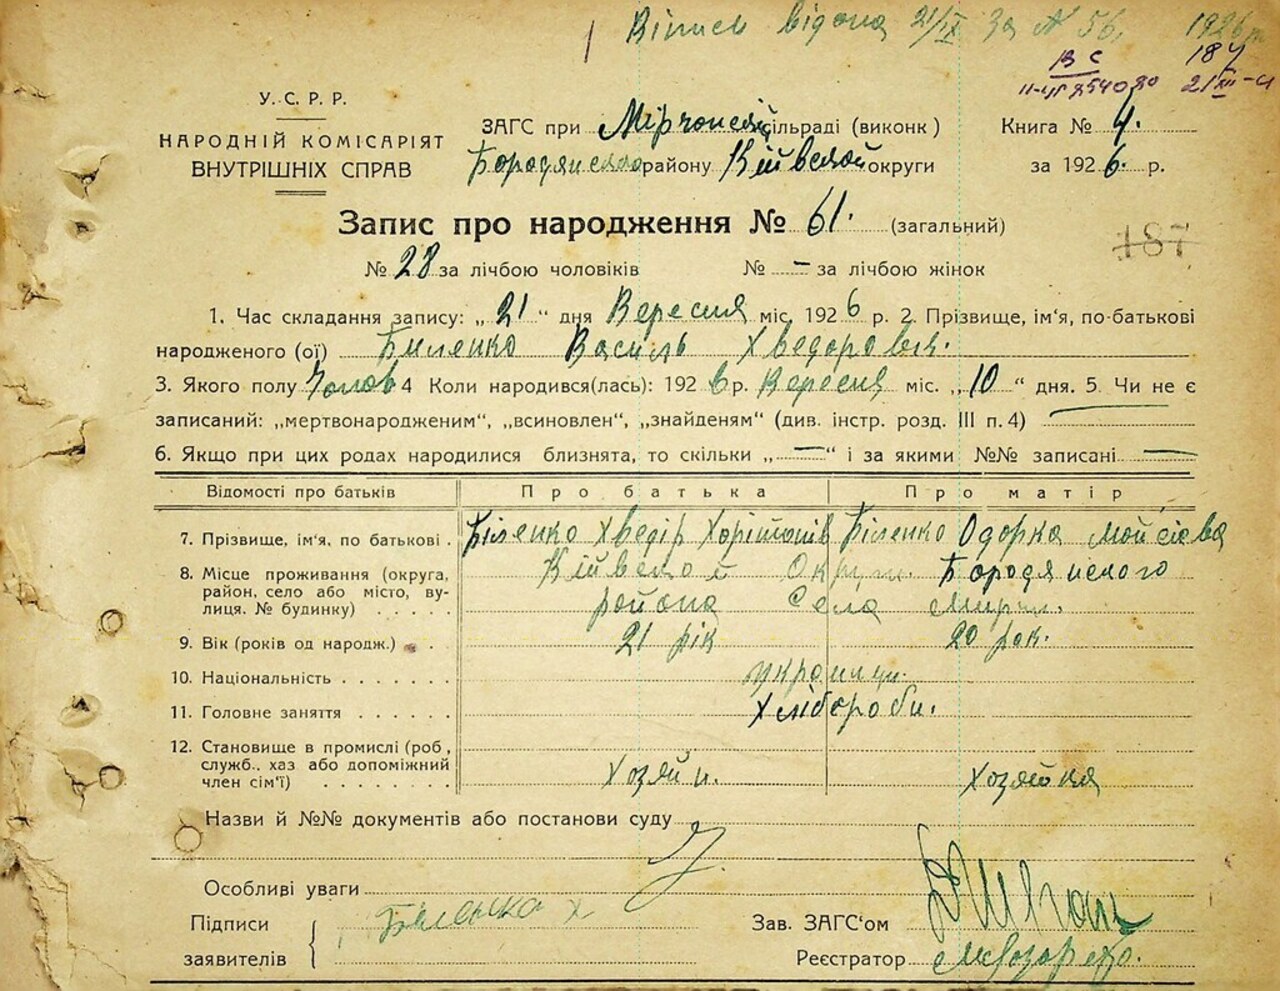 Вітись відана 21/IX за № 56, 1926 р
ВС 187
У.С.Р.Р.
НАРОДНІЙ КОМІСАРІЯТ
ВНУТРІШНІХ СПРАВ
ЗАГС при Мірчанскій сільраді (виконк) Книга № 4.
Бородянского району Київской округи за 1926 р.
Запис про народження № 61. (загальний)
187
№ 28 за лічбою чоловіків № – за лічбою жінок
1. Час складання запису: „ 21 “ дня Вересня міс. 1926 р. 2. Прізвище, ім'я, по-батькові
народженого (ої) Биленко Василь Хведоровіч.
3. Якого полу Чолов 4 Коли народився(лась): 1926 р. Вересня міс. „ 10 “ дня. 5. Чи не є
записаний: „мертвонародженим“, „всиновлен“, „знайденям“ (див. інстр. розд. III п. 4)
6. Якщо при цих родах народилися близнята, то скільки „ — “ і за якими №№ записані —
Відомості про батьків Про батька Про матір
7. Прізвище, ім'я, по батькові . Біленко Хведір Харітонів Біленко Одорка Мойсієва
8. Місце проживання (округа, Київской Округи. Бородянского
район, село або місто, ву-
лиця. № будинку) . . . . района Села Мирчи.
9. Вік (років од народж.) . . 21 рік 20 рок.
10. Національність . . . . . . . украинци.
11. Головне заняття . . . . . . Хлібороби.
12. Становище в промислі (роб,
служб., хаз або допоміжний
член сім'ї) . . . . . . . Хозяйн. Хозяйка
Назви й №№ документів або постанови суду
Особливі уваги
Підписи Біленко Х Зав. ЗАГС'ом
заявителів Реєстратор